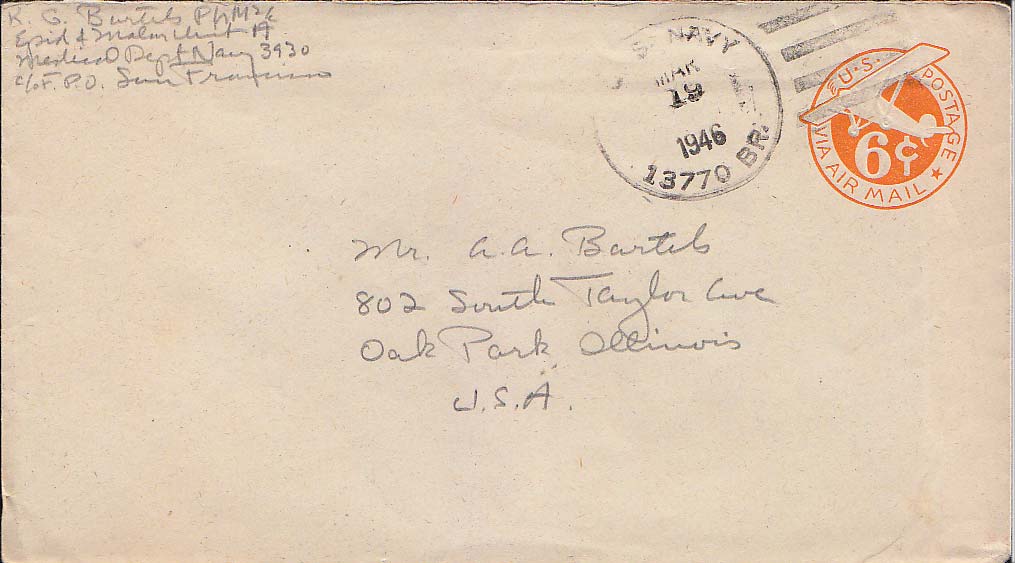 R. G. Bartels PhM2c
Epid & Malar Unit A
Medical Dept Navy 3930
c/o F.P.O. San Francisco
U.S. NAVY
MAR
19
1946
13770 BR.
U.S. POSTAGE
6¢
VIA AIR MAIL
Mr. A.A. Bartels
802 South Taylor Ave
Oak Park Illinois
U.S.A.